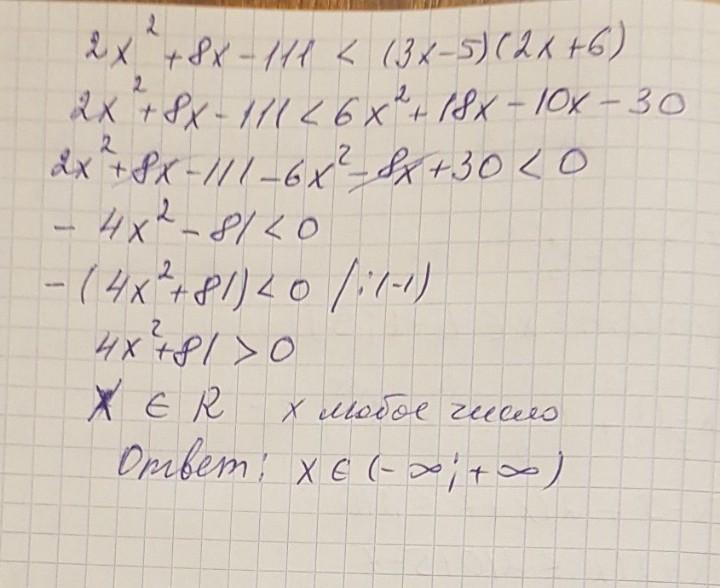 2x² + 8x - 111 < (3x-5)(2x+6)
2x² + 8x - 111 < 6x² + 18x - 10x - 30
2x² + 8x - 111 - 6x² - 8x + 30 < 0
- 4x² - 81 < 0
- (4x² + 81) < 0 /:(-1)
4x² + 81 > 0
x ∈ R x любое число
Ответ: x ∈ (-∞; +∞)